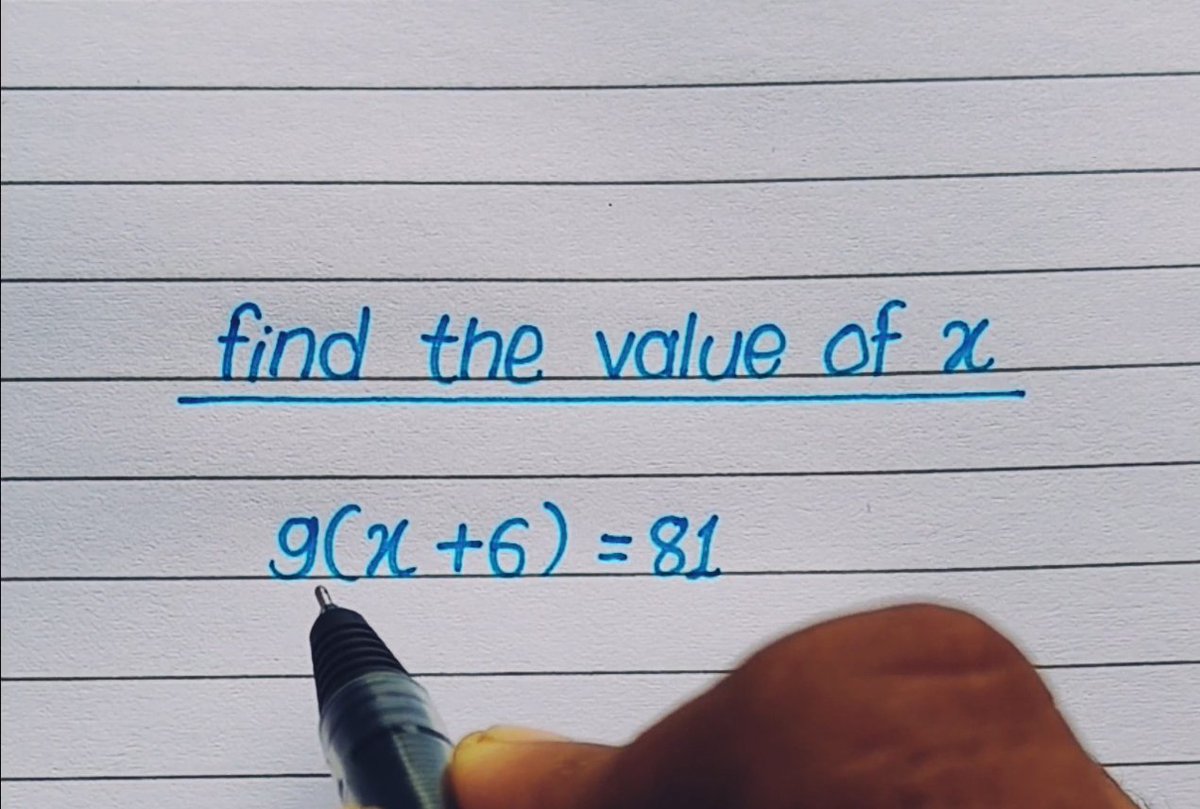 find the value of x
9(x+6) = 81